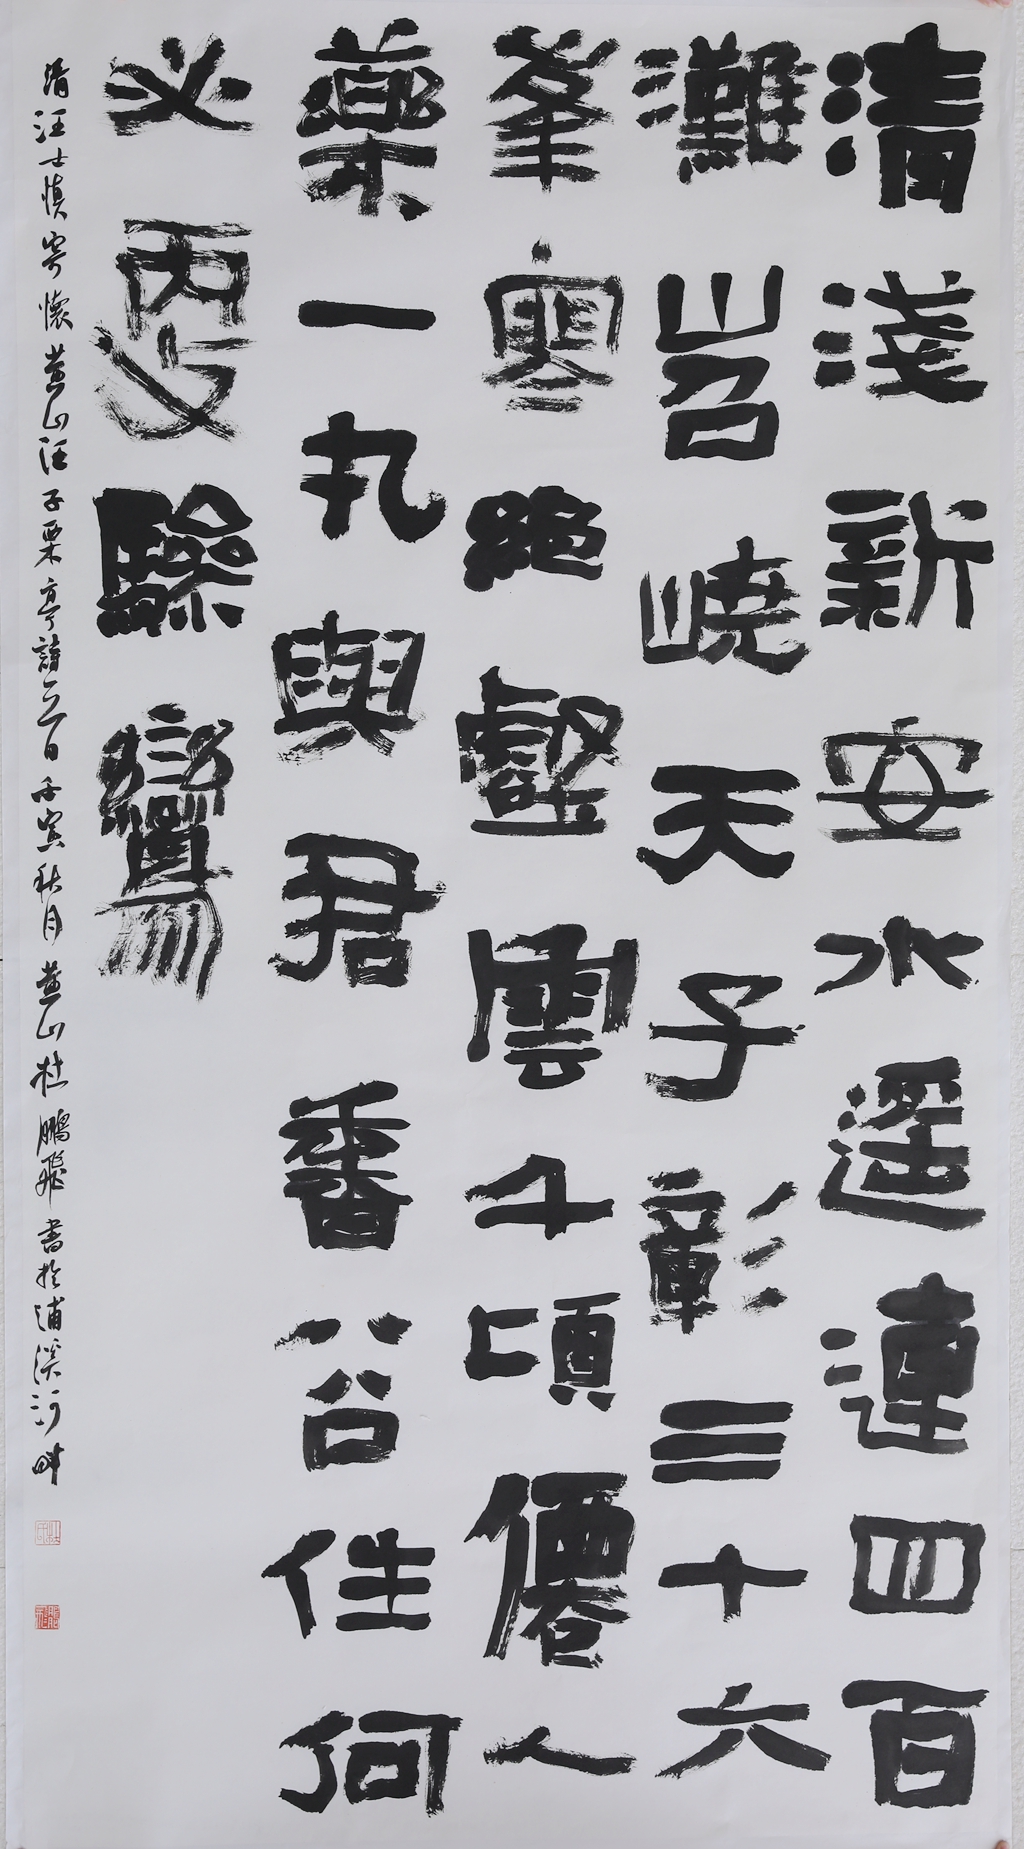 清淺新安水遥連四百
灘岧嶢天子彰三十六
峯寒絶壑雲千頃僊人
藥一丸與君香谷住何
必更驂鸞
清汪士慎寄懷黄山汪子栗亭詩一首壬寅秋月黄山杜鵬飛書於浦溪河畔